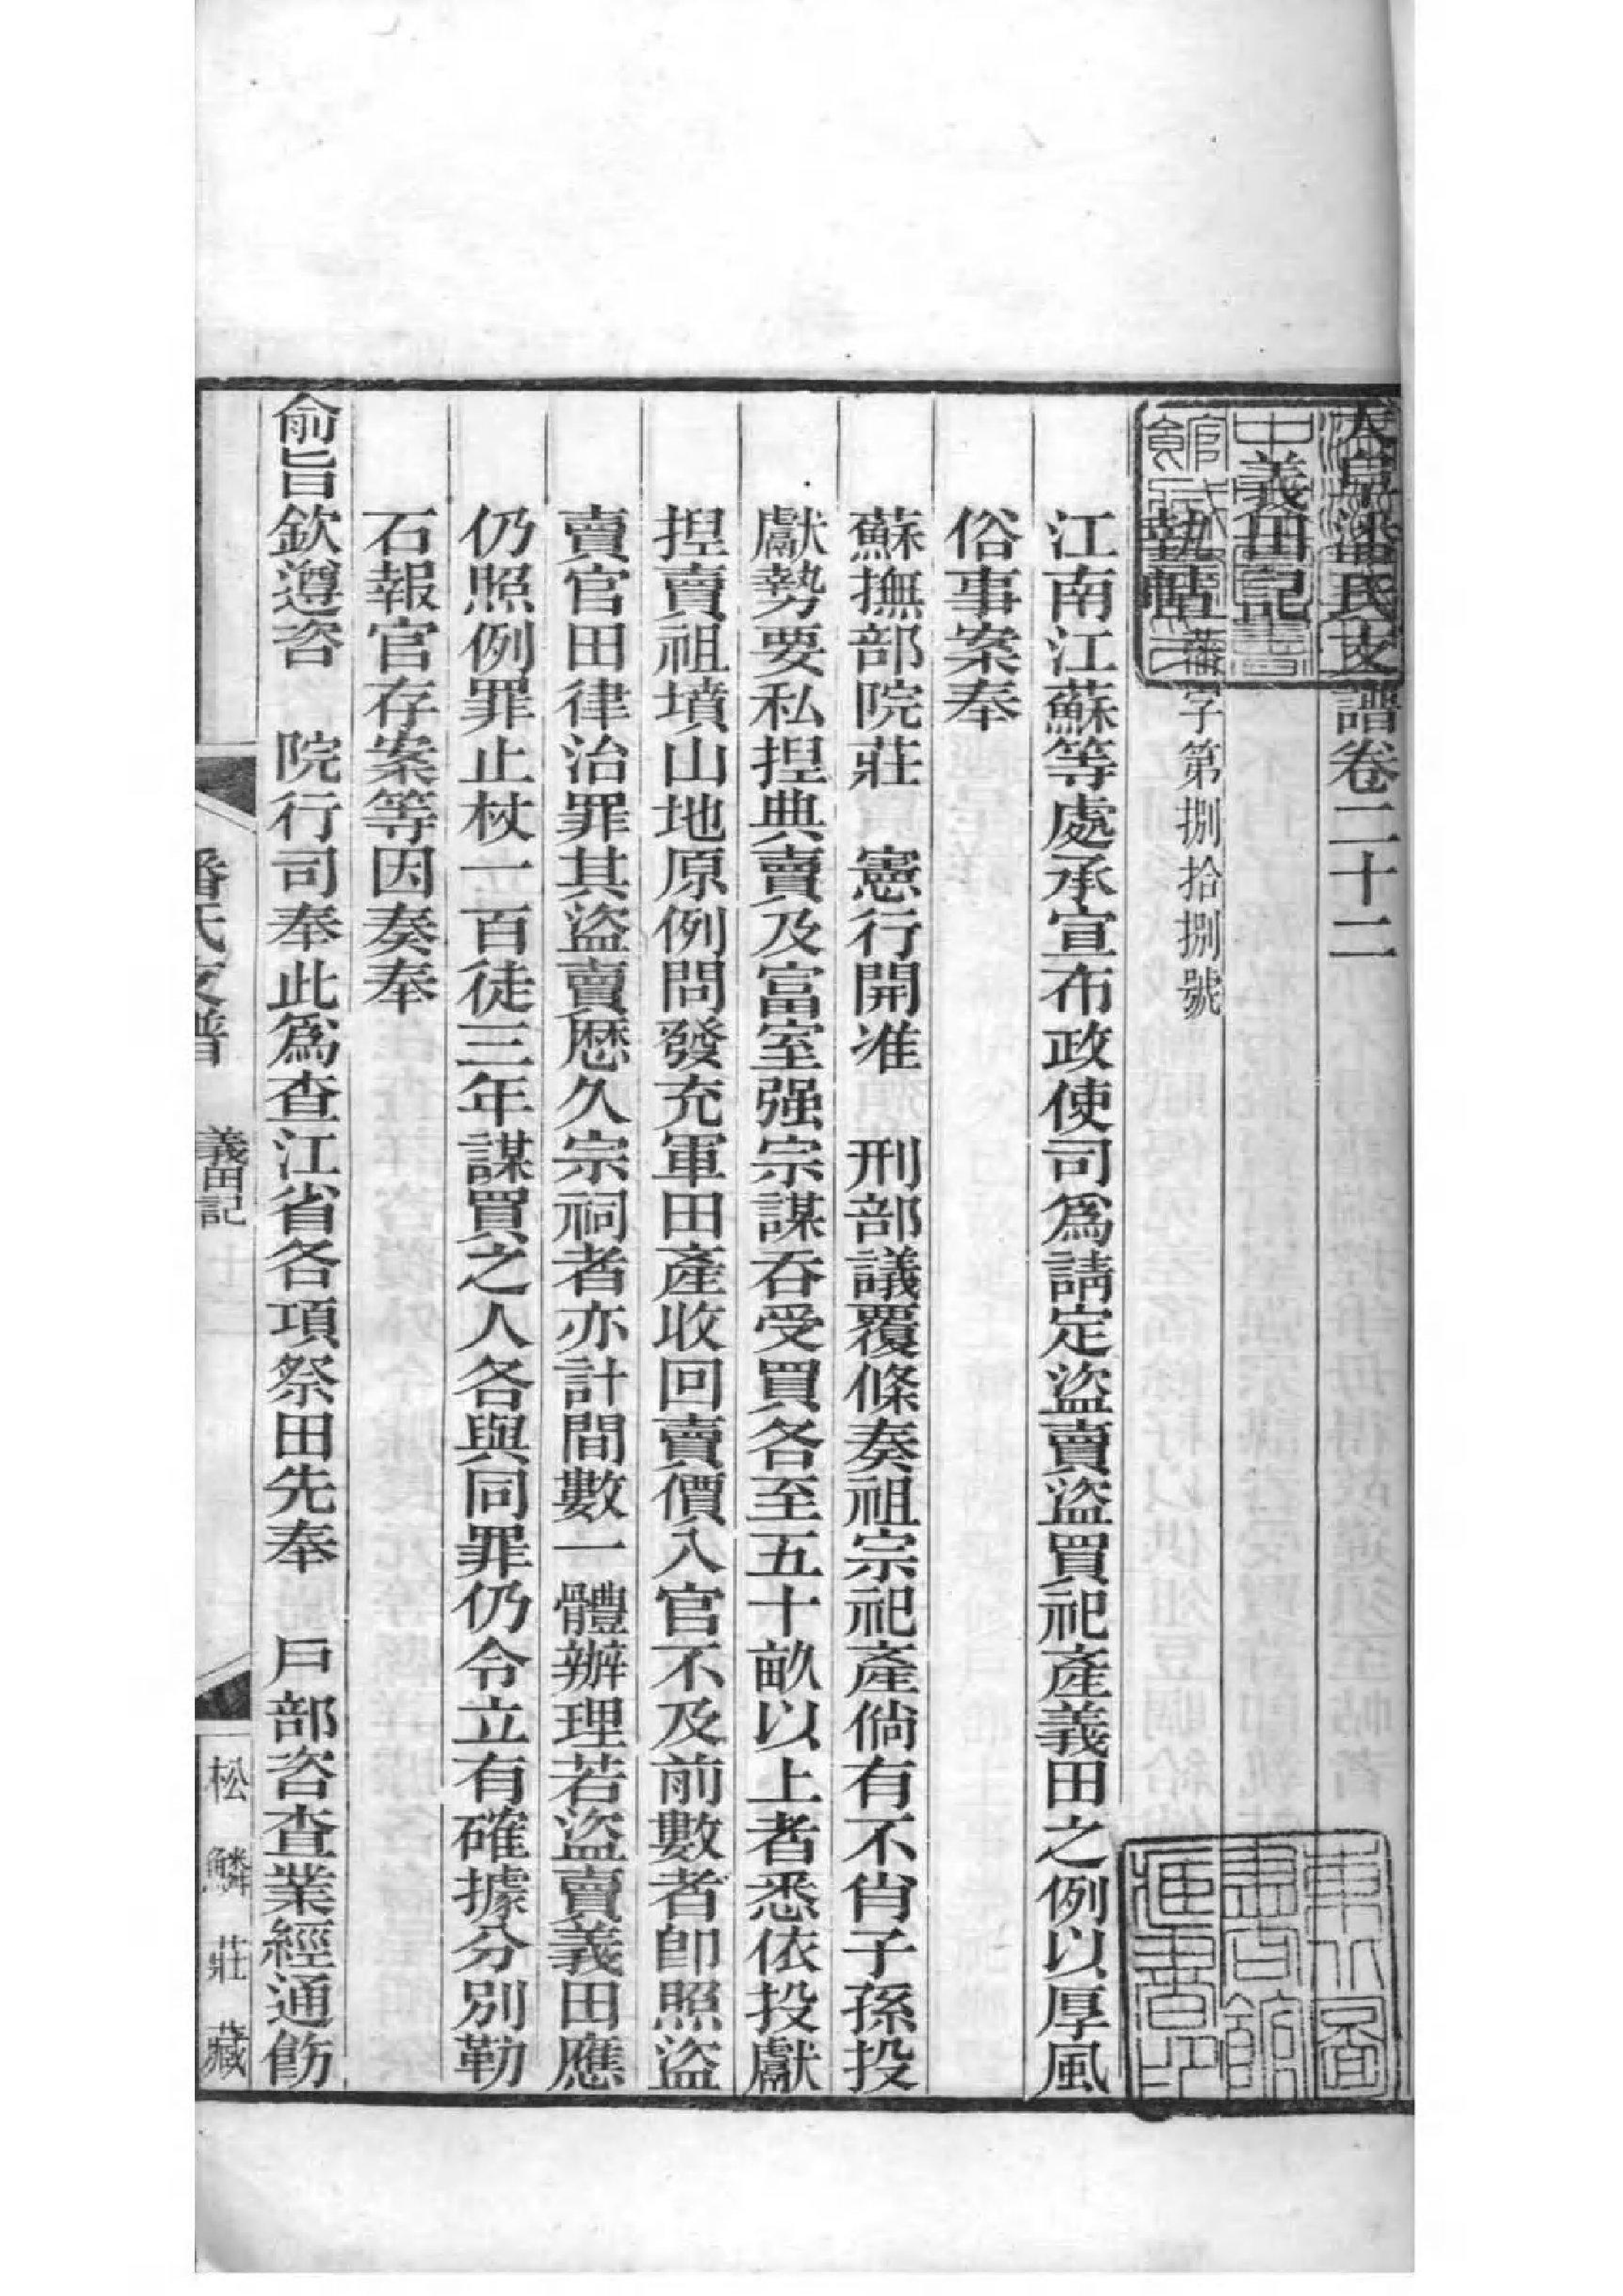 大阜潘氏支譜卷二十二
義田記
執帖 藩字第捌拾捌號
江南江蘇等處承宣布政使司爲請定盜賣盜買祀產義田之例以厚風
俗事案奉
蘇撫部院莊 憲行開准 刑部議覆條奏祖宗祀產倘有不肖子孫投
獻勢要私捏典賣及富室强宗謀吞受買各至五十畝以上者悉依投獻
捏賣祖墳山地原例問發充軍田產收回賣價入官不及前數者卽照盜
賣官田律治罪其盜賣歷久宗祠者亦計間數一體辦理若盜賣義田應
仍照例罪止杖一百徒三年謀買之人各與同罪仍令立有確據分別勒
石報官存案等因奏奉
俞旨欽遵咨 院行司奉此爲查江省各項祭田先奉 戶部咨查業經通飭
潘氏支譜 義田記
松鱗莊藏